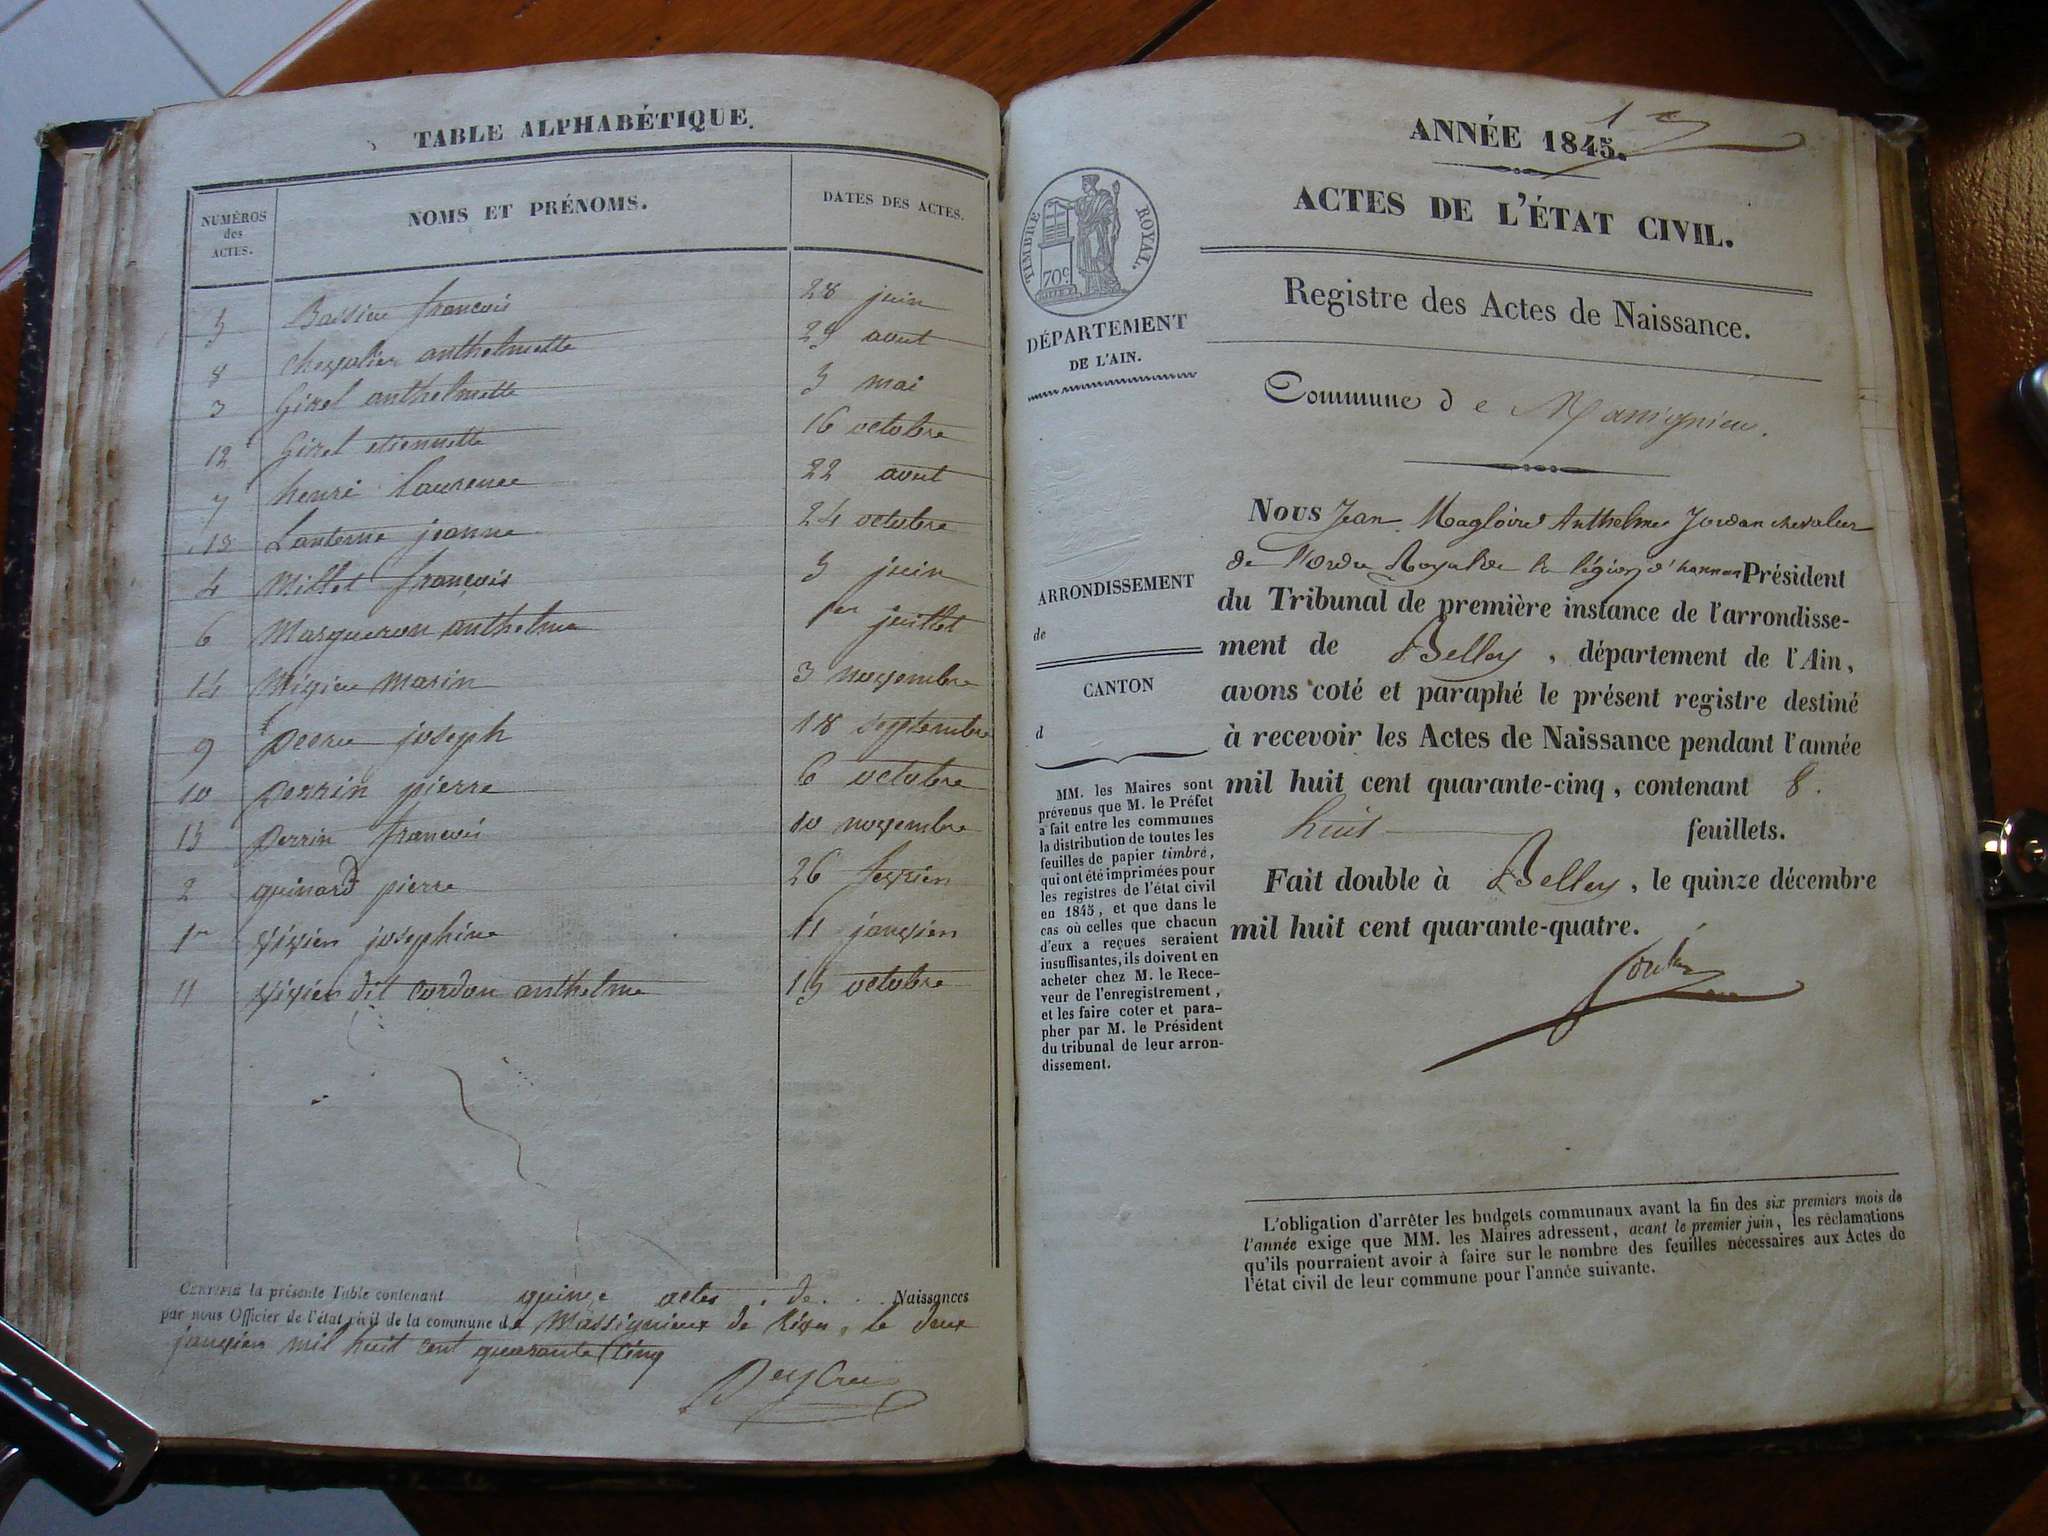 TABLE ALPHABÉTIQUE.
NUMÉROS des ACTES. NOMS ET PRÉNOMS. DATES DES ACTES.
5 Bassieu françois 28 juin
8 chevalier anthelmette 29 aout
3 Girel anthelmette 3 mai
12 Girel etiennette 16 octobre
7 henri laurence 22 aout
13 Lanterne jeanne 24 octobre
4 Millet françois 3 juin
6 Marqueron anthelme 1er juillet
14 Migieu marin 3 novembre
9 joseph 18 septembre
10 perrin pierre 6 octobre
15 perrin françois 10 novembre
2 quinard pierre 26 fevrien
1er vivien josephine 11 janvien
11 vivien dit cordon anthelme 13 octobre
CERTIFIÉ la présente Table contenant quinze actes de Naissances
par nous Officier de l'état civil de la commune de Massignieux de Rives, le deux
janvien mil huit cent quarante cinq
ANNÉE 1845.
ACTES DE L'ÉTAT CIVIL.
TIMBRE ROYAL.
70c.
Registre des Actes de Naissance.
DÉPARTEMENT
DE L'AIN.
Commune de Massignieu.
Nous Jean Magloire Anthelme Jordan chevalier
de l'ordre Royal de la légion d'honneur Président
du Tribunal de première instance de l'arrondisse-
ment de Belley, département de l'Ain,
avons coté et paraphé le présent registre destiné
à recevoir les Actes de Naissance pendant l'année
mil huit cent quarante-cinq, contenant 8.
huit feuillets.
Fait double à Belley, le quinze décembre
mil huit cent quarante-quatre.
ARRONDISSEMENT
de
CANTON
d
MM. les Maires sont
prévenus que M. le Préfet
a fait entre les communes
la distribution de toutes les
feuilles de papier timbré,
qui ont été imprimées pour
les registres de l'état civil
en 1845, et que dans le
cas où celles que chacun
d'eux a reçues seraient
insuffisantes, ils doivent en
acheter chez M. le Rece-
veur de l'enregistrement,
et les faire coter et para-
pher par M. le Président
du tribunal de leur arron-
dissement.
L'obligation d'arrêter les budgets communaux avant la fin des six premiers mois de
l'année exige que MM. les Maires adressent, avant le premier juin, les réclamations
qu'ils pourraient avoir à faire sur le nombre des feuilles nécessaires aux Actes de
l'état civil de leur commune pour l'année suivante.